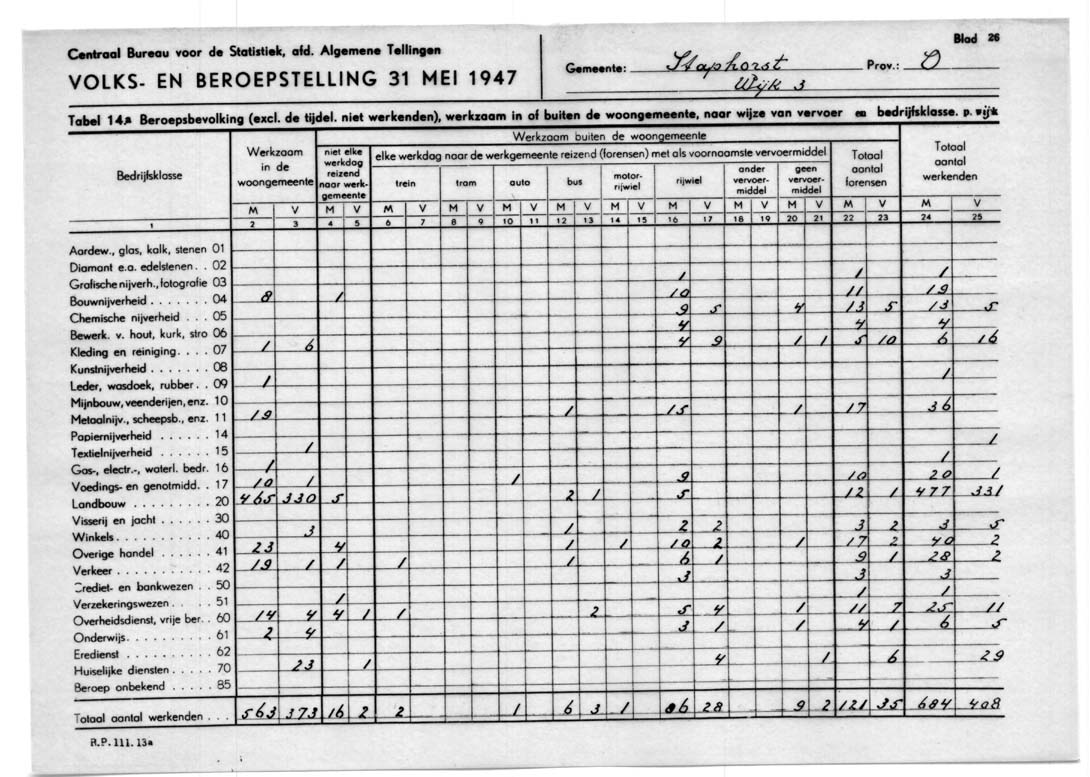 Blad 26
Centraal Bureau voor de Statistiek, afd. Algemene Tellingen
VOLKS- EN BEROEPSTELLING 31 MEI 1947
Gemeente: Staphorst Prov.: O
Wijk 3
Tabel 14.a Beroepsbevolking (excl. de tijdel. niet werkenden), werkzaam in of buiten de woongemeente, naar wijze van vervoer en bedrijfsklasse. p. wijk
Bedrijfsklasse
Werkzaam in de woongemeente
Werkzaam buiten de woongemeente
niet elke werkdag reizend naar werkgemeente
elke werkdag naar de werkgemeente reizend (forensen) met als voornaamste vervoermiddel
trein tram auto bus motor-rijwiel rijwiel ander vervoer-middel geen vervoer-middel
Totaal aantal forensen
Totaal aantal werkenden
M V M V M V M V M V M V M V M V M V M V M V M V
1 2 3 4 5 6 7 8 9 10 11 12 13 14 15 16 17 18 19 20 21 22 23 24 25
Aardew., glas, kalk, stenen 01
Diamant e.a. edelstenen. . 02
Grafische nijverh., fotografie 03 1 1 1
Bouwnijverheid . . . . . . . 04 8 1 10 11 19
Chemische nijverheid . . . 05 9 5 4 13 5 13 5
Bewerk. v. hout, kurk, stro 06 4 4 4
Kleding en reiniging. . . . 07 1 6 4 9 1 1 5 10 6 16
Kunstnijverheid . . . . . . . 08
Leder, wasdoek, rubber. . 09 1 1
Mijnbouw, veenderijen, enz. 10
Metaalnijv., scheepsb., enz. 11 19 1 15 1 17 36
Papiernijverheid . . . . . . 14
Textielnijverheid . . . . . . 15 1 1
Gas-, electr.-, waterl. bedr. 16 1 1
Voedings- en genotmidd. . 17 10 1 1 9 10 20 1
Landbouw . . . . . . . . . 20 465 330 5 2 1 5 12 1 477 331
Visserij en jacht . . . . . . 30
Winkels. . . . . . . . . . . 40 3 1 2 2 3 2 3 5
Overige handel . . . . . . 41 23 4 1 1 10 2 1 17 2 40 2
Verkeer . . . . . . . . . . . 42 19 1 1 1 1 6 1 9 1 28 2
Crediet- en bankwezen . . 50 3 3 3
Verzekeringswezen. . . . . 51 1 1 1
Overheidsdienst, vrije ber. . 60 14 4 4 1 1 2 5 4 1 11 7 25 11
Onderwijs. . . . . . . . . . 61 2 4 3 1 1 4 1 6 5
Eredienst . . . . . . . . . . 62
Huiselijke diensten . . . . . 70 23 1 4 1 6 29
Beroep onbekend . . . . . 85
Totaal aantal werkenden . . . 563 373 16 2 2 1 6 3 1 28 9 2 121 35 684 408
R.P. 111. 13a